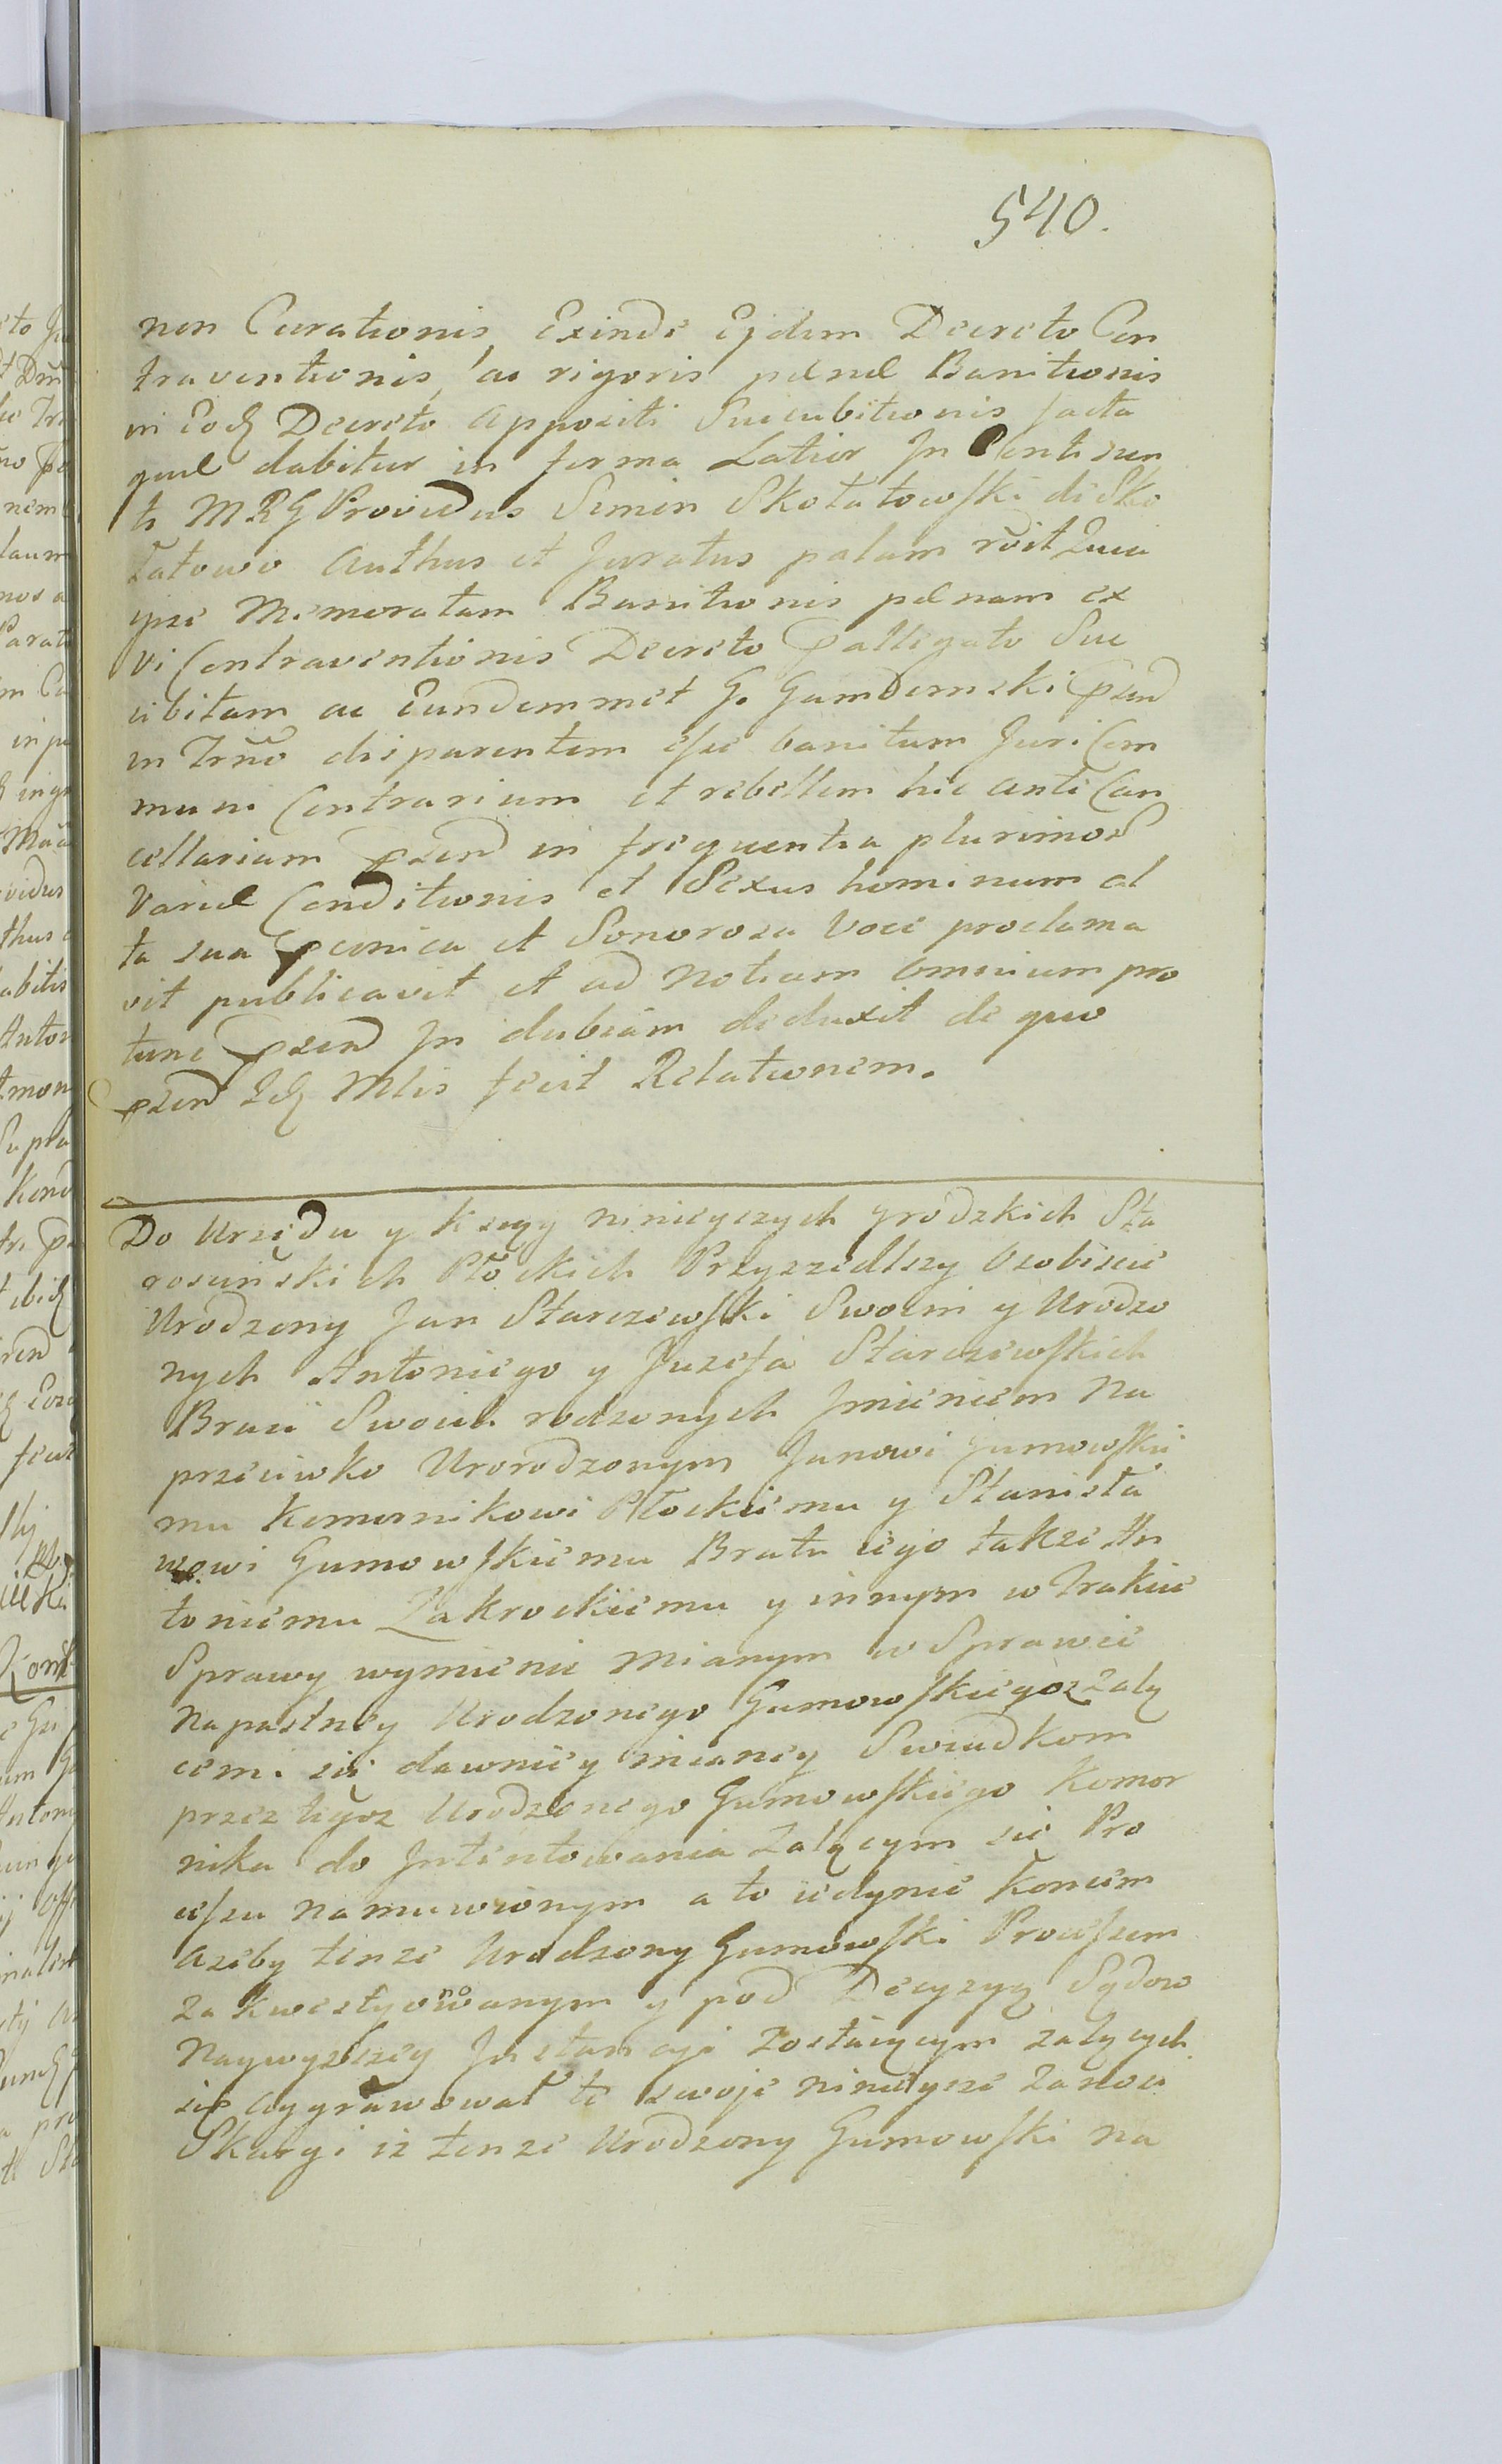 540.
non Curationis Exinde Ejdem Decreto Con
traventionis, ac rigoris pænæ Banitionis
in Eodz Decreto Appositi Succubitionis facta
quæ dabitur in forma Latior In Conti
ti MRG Providus Simin Skołatowski de Sko
łatowo Authus et Juratus palam rdit Quia
ipse Memoratam Banitionis pænam ex
vi Contraventionis Decreto pallegato Suc
cibitam ac Eundemmet G. Gumdemski pnd
in Trno disparentem esse banitum Juri Com
muni Contrarium et rebellem hic ante Can
cellariam psend in frequentia plurimor
Variæ Conditionis et Sexus hominum al
ta sua pconica et Sonorosa Voce proclama
vit publicavit et ad Notiam omnium pro
tunc psend In dubiam deduxit de quo
psend Idz Mlis fecit Relationem.
Do Urzędu y Ksęgy ninieyszych grodzkich Sta
roscińskich Płockich Przyszedłszy Osobiscie
Urodzony Jan Starczewski Swoim y Urodzo
nych Antoniego y Juzefa Starczewskich
Braci Swoich rodzonych Jmieniem Na
przeciwko Urorodzonym Janowi Gumowskie
mu Komornikowi Płockiemu y Stanisła
wowi Gumowskiemu Bratu iego takze An
toniemu Zakrockiemu y innym w Trakcie
Sprawy wymienie Mianym w Sprawie
Napastney Urodzonego Gumowskiego z zalą
cemi się dawniey mianey Swiadkom
przez tegoz Urodzonego Gumowskiego Komor
nika do Jntentowania Zalącym sie Pro
cessu Namuwionym a to iedynie Koncem
Azeby tenze Urodzony Gumowski Processem
Zakwestyowanym y pod Decyzyą Sądow
Naywyzszey Jnstancyi Zostaiącym zalących
sie Aggrawował te swoje ninieysze Zanosi
Skargi iż tenze Urodzony Gumowski na